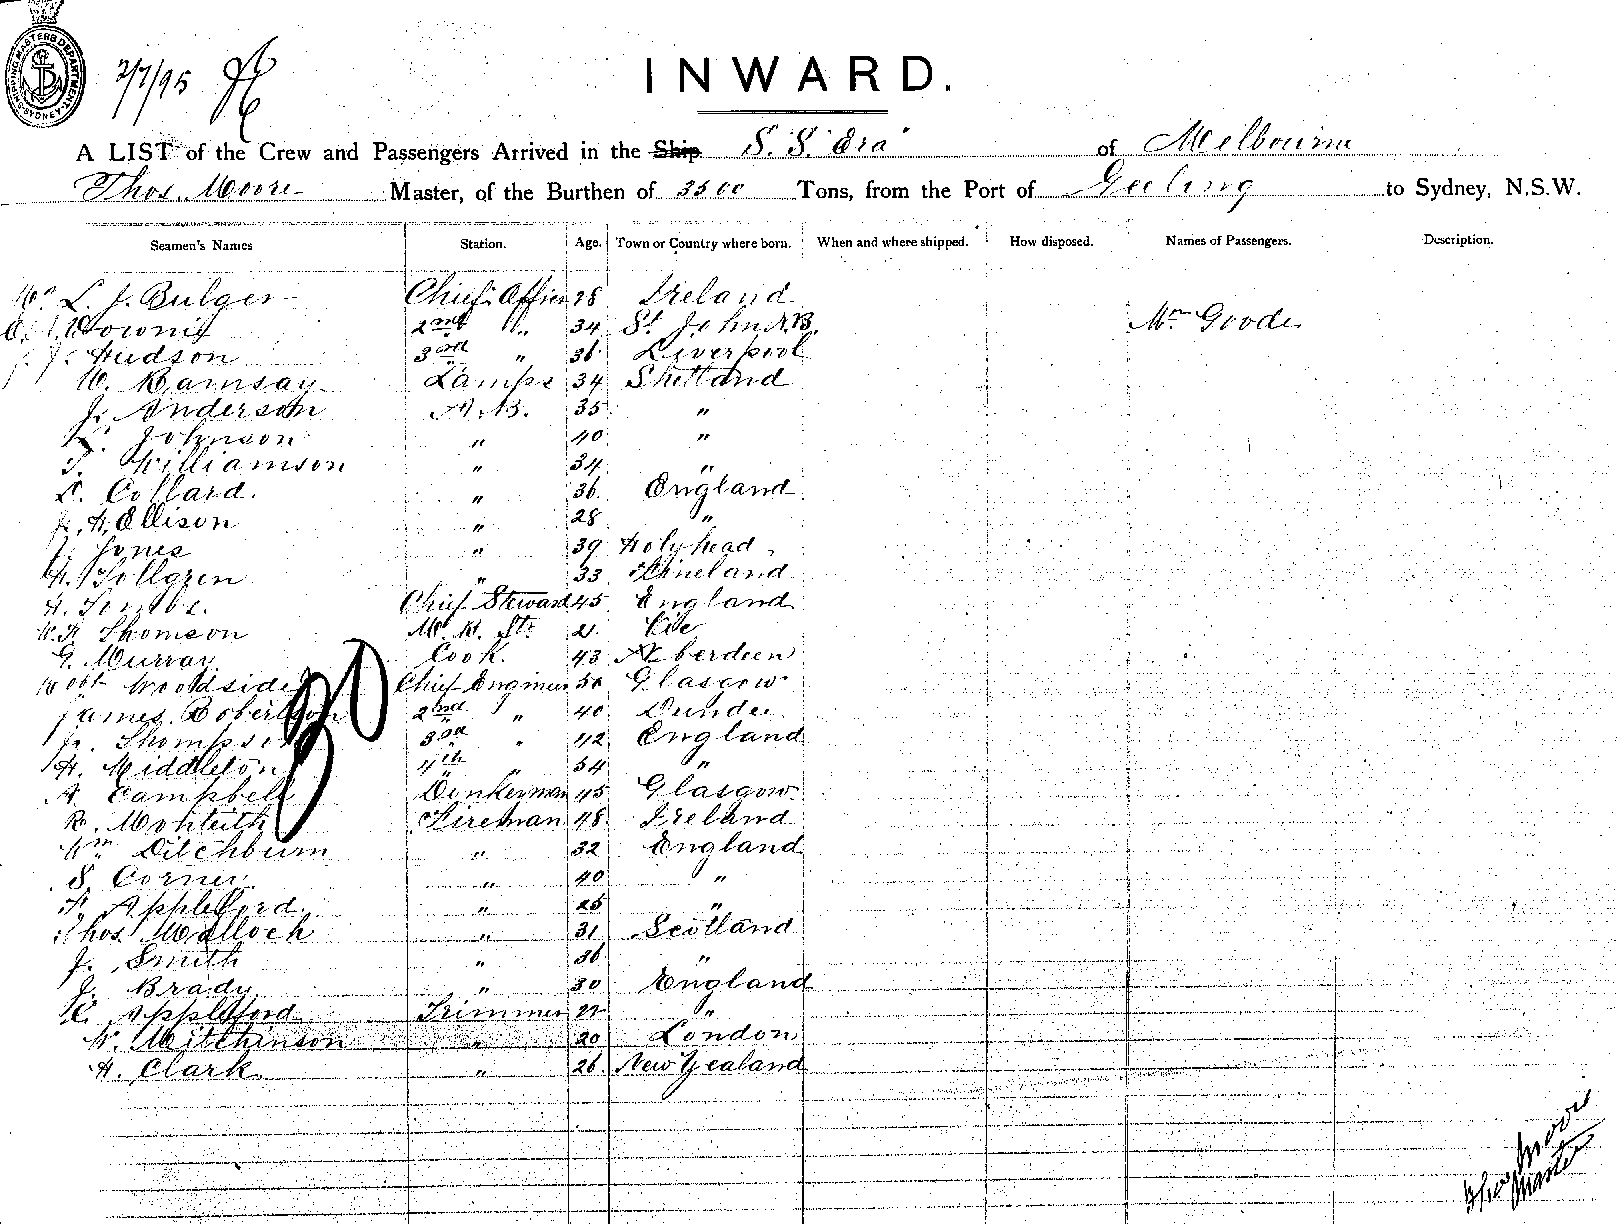 SHIPPING MASTERS DEPARTMENT SYDNEY
2/7/95
INWARD.
A LIST of the Crew and Passengers Arrived in the Ship S. S. "Era" of Melbourne
Thos. Moore Master, of the Burthen of 3500 Tons, from the Port of Geelong to Sydney, N.S.W.
Seamen's Names Station. Age. Town or Country where born. When and where shipped. How disposed. Names of Passengers. Description.
L. J. Bulger Chief Officer 28 Ireland
Downie 2nd " 34 St John N.B. Mr Goode
J. Hudson 3rd " 36 Liverpool
W. Ramsay Lamps 34 Shetland
J. Anderson A.B. 35 "
Johnson " 40 "
T. Williamson " 34 "
C. Collard. " 36 England
J. H. Ellison " 28 "
J. Jones " 39 Holyhead
H. Tollgren " 33 Fineland
H. Chief Steward 45 England
W. H. Thomson M. R. St. 21
G. Murray Cook. 43 Aberdeen
Robt Woodside Chief Engineer 50 Glasgow
James Robertson 2nd " 40 Dundee
Jn. Thompson 3rd " 42 England
H. Middleton 4th " 54 "
A. Campbell Donkeyman 45 Glasgow
R. Monteith Fireman 48 Ireland
Wm Ditchburn " 32 England
S. Corner " 40 "
F. Appleford " 25 "
Thos Malloch " 31 Scotland
J. Smith " 36 "
J. Brady " 30 England
C. Appleford Trimmer 22 "
W. Mitchinson " 20 London
H. Clark " 26 New Zealand
Thos Moore
Master